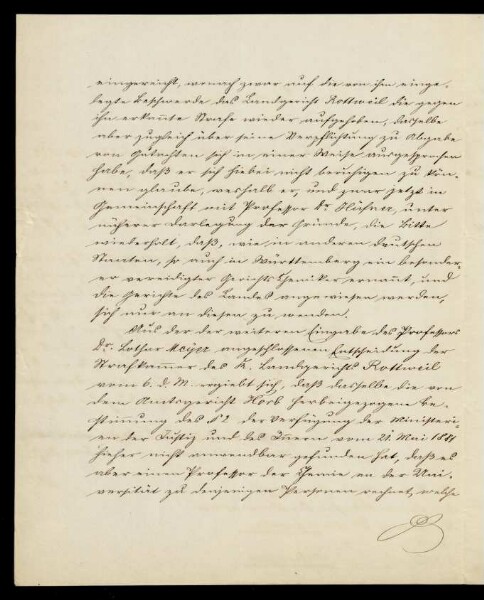 eingereicht, wonach zwar auf die von ihm einge-
legte Beschwerde das Landgericht Rottweil die gegen
ihn erkannte Strafe wieder aufgehoben, dasselbe
aber zugleich über seine Verpflichtung zu Abgabe
von Gutachten sich in einer Weise ausgesprochen
habe, daß er sich hiebei nicht beruhigen zu kön-
nen glaube, weshalb er, und zwar jetzt in
Gemeinschaft mit Professor Dr. Hüfner, unter
näherer Darlegung der Gründe, die Bitte
wiederholt, daß, wie in anderen deutschen
Staaten, so auch in Württemberg ein besonder-
er vereidigter Gerichts Chemiker ernannt, und
die Gerichte des Landes angewiesen werden,
sich nur an diesen zu wenden.
Aus der der weiteren Eingabe des Professors
Dr. Lothar Meyer angeschlossenen Entscheidung der
Strafkammer des K. Landgerichts Rottweil
vom 6. d. M. ergiebt sich, daß dasselbe die von
dem Amtsgericht Horb herbeigezogene Be-
stimmung des § 2 der Verfügung der Ministeri-
en der Justiz und des Innern vom 21. Mai
hieher nicht anwendbar gefunden hat, daß es
aber einen Professor der Chemie an der Uni-
versität zu denjenigen Personen rechnet, welche